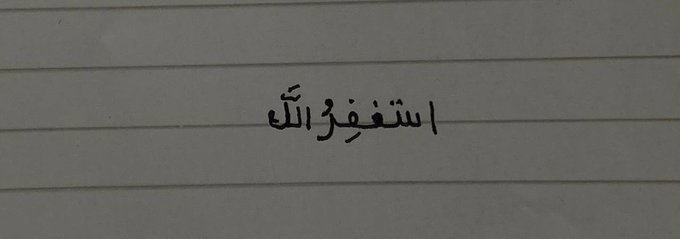 استغفِرُ اللَّه